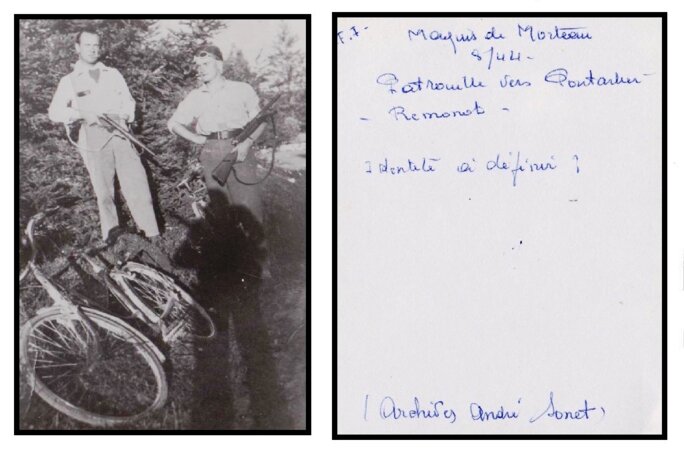 F.F. Maquis de Morteau
8/44-
Patrouille vers Pontarlier-
- Remonot -
Identité à définir ?
(Archives André Sonet)